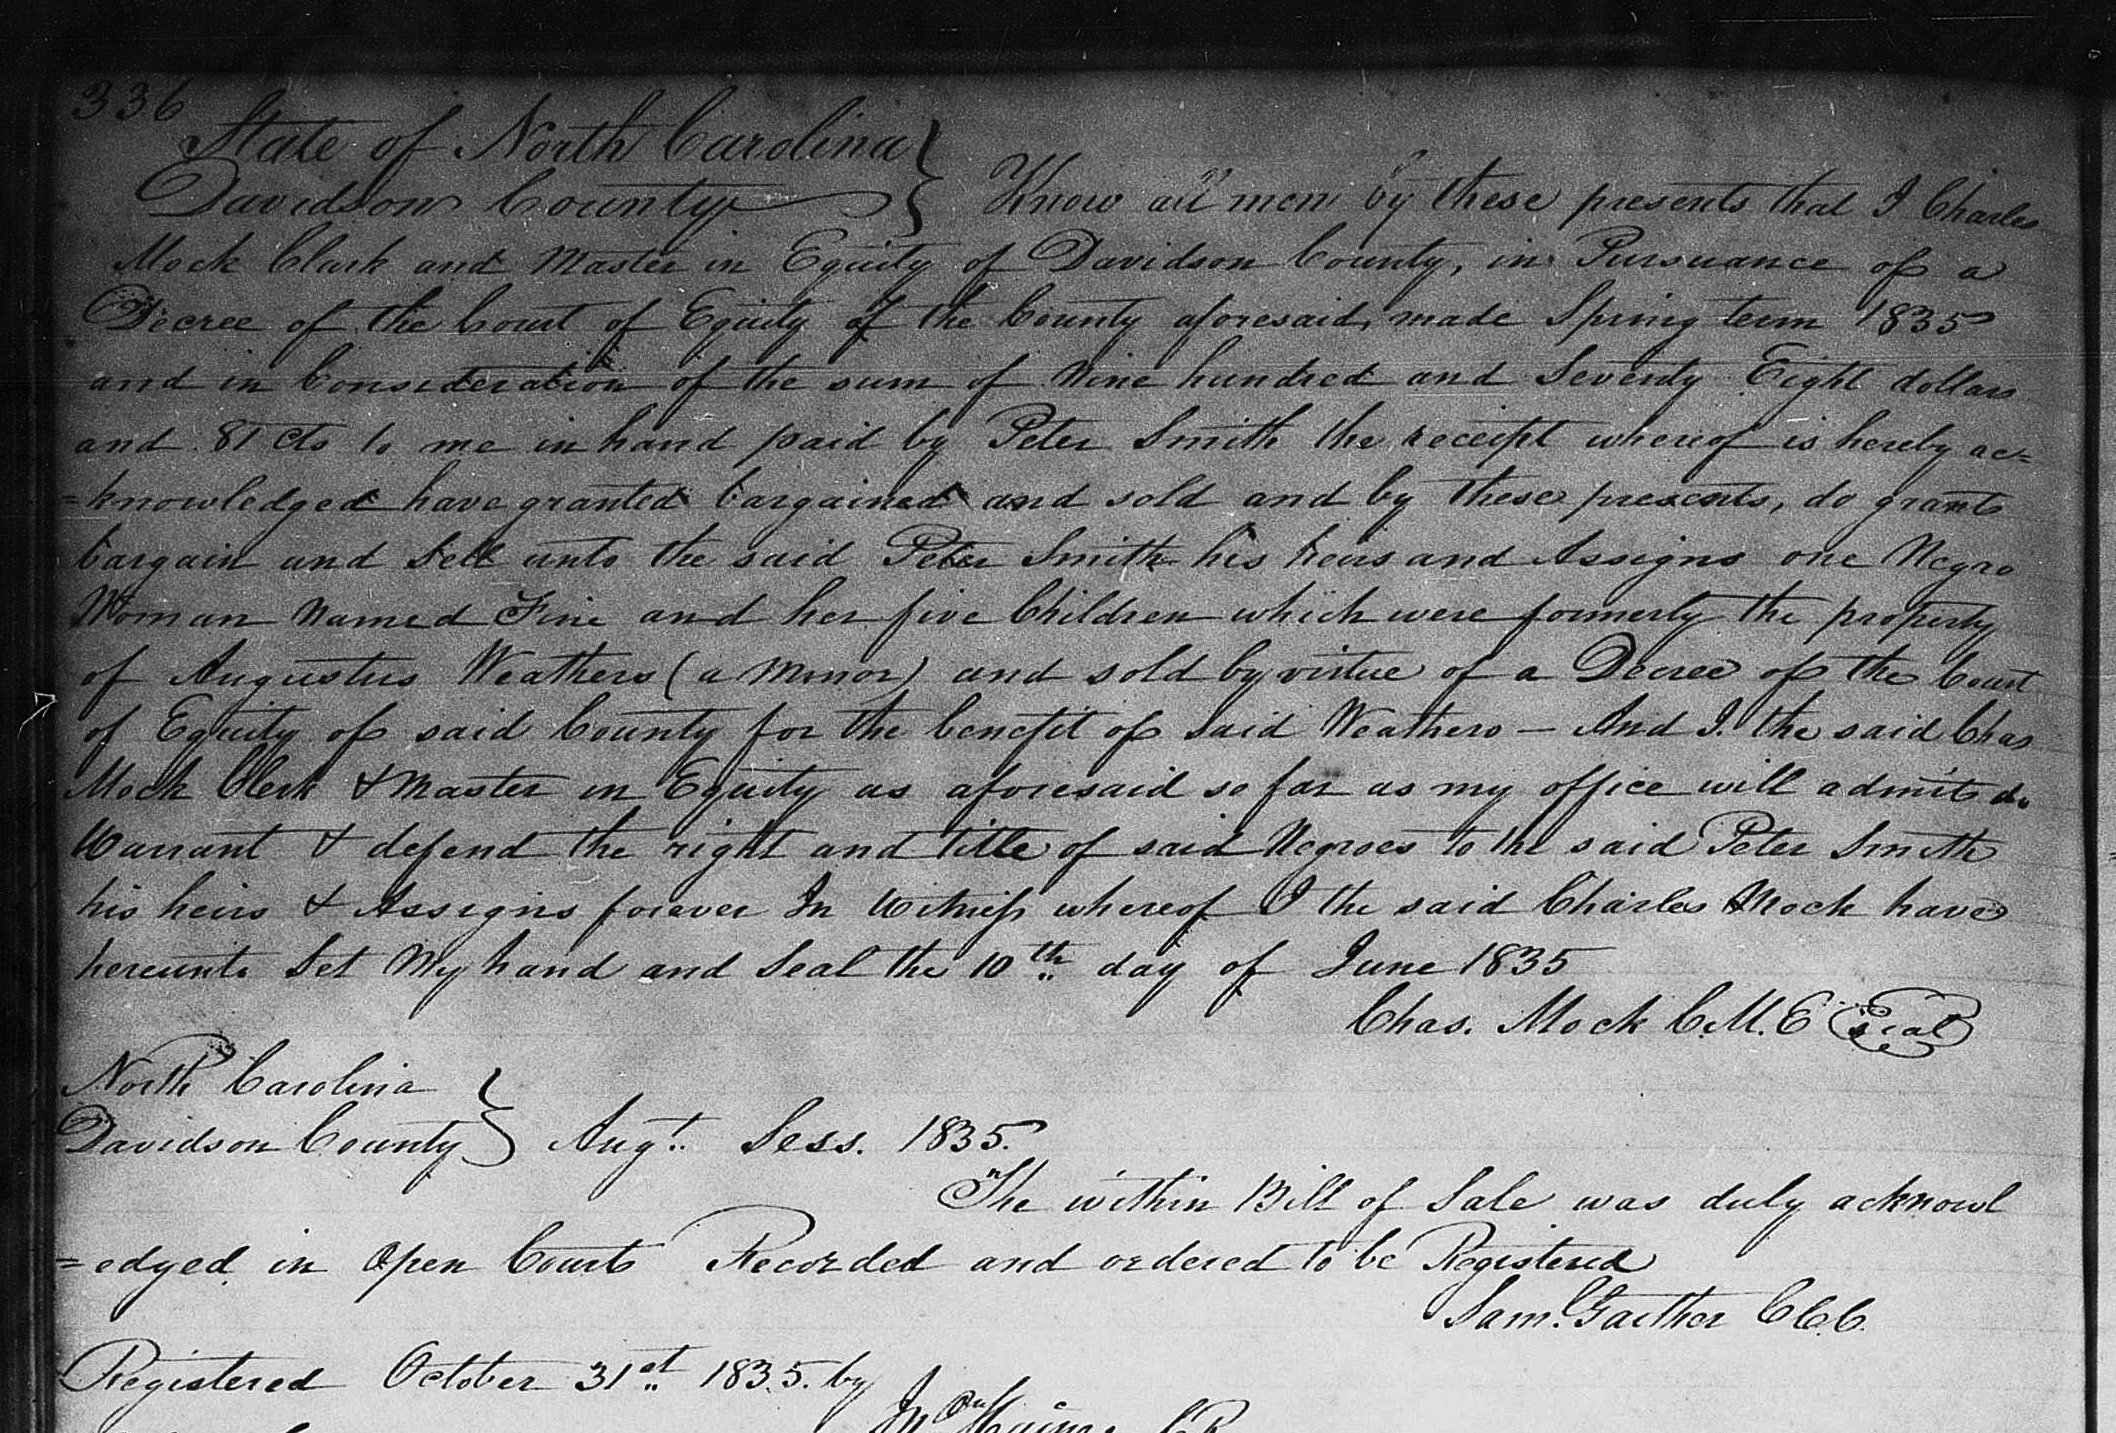 336
State of North Carolina }
Davidson County } Know all men by these presents that I Charles
Mock Clark and Master in Equity of Davidson County, in Pursuance of a
Decree of the Court of Equity of the County aforesaid, made Spring term 1835
and in Consideration of the sum of Nine hundred and Seventy Eight dollars
and 81 cts to me in hand paid by Peter Smith the receipt whereof is hereby ac=
=knowledged have granted bargained and sold and by these presents, do grant
bargain and Sell unto the said Peter Smith his heirs and Assigns one Negro
Woman Named Fine and her five Children which were formerly the property
of Augustus Weathers (a Minor) and sold by virtue of a Decree of the Court
of Equity of said County for the benefit of said Weathers — And I. the said Chas
Mock Clerk & Master in Equity as aforesaid so far as my office will admit do
Warrant & defend the right and title of said Negroes to the said Peter Smith
his heirs & Assigns forever In Witness whereof I the said Charles Mock have
hereunto Set My hand and Seal the 10th day of June 1835
Chas. Mock C.M.E Seal
North Carolina }
Davidson County } Augt. Sess. 1835.
The within Bill of Sale was duly acknowl
=edged in Open Court Recorded and ordered to be Registered
Sam. Gaither CCC.
Registered October 31st 1835. by